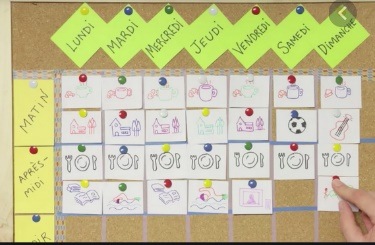 LUNDI
MARDI
MERCREDI
JEUDI
VENDREDI
SAMEDI
DIMANCHE
MATIN
APRÈS-
MIDI